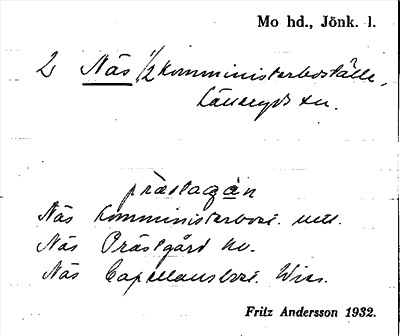 Mo hd., Jönk. l.
2 Näs 1/2 komministerboställe,
Länsryds sn.
prästagån
Näs Komministerbost.
Näs Prästgård
Näs Capellansbost.
Fritz Andersson 1932.